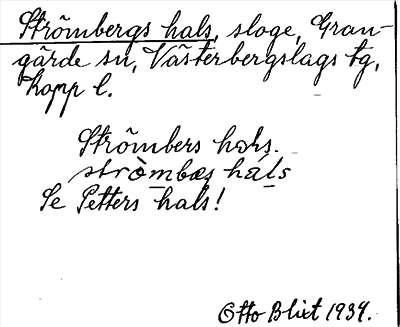 Strömbergs hals, sloge, Gran-
gärde sn, Västerbergslags tg,
Kopp l.
Strömbers hals.
stròmbæș hals
Se Petters hals!
Otto Blixt 1934.